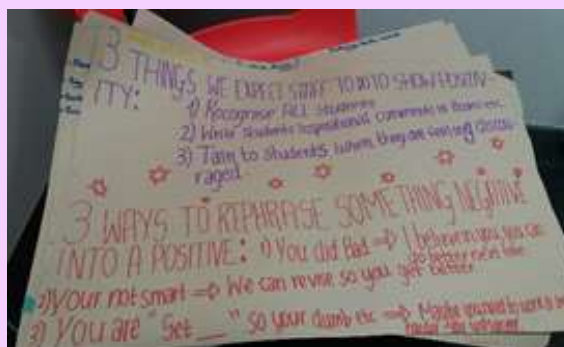 3 THINGS WE EXPECT STAFF TO DO TO SHOW POSITIV-
ITY:
1) Recognise ALL students
2) Write students inspirational comments in books etc.
3) Talk to students when they are feeling discou-
raged
3 WAYS TO REPHRASE SOMETHING NEGATIVE
INTO A POSITIVE: 1) You did Bad ⇒ I believe in you, you can
do better next time
2) Your not smart ⇒ We can revise so you get better
3) You are "Set __" so your dumb etc ⇒ Maybe you need to work a bit
harder